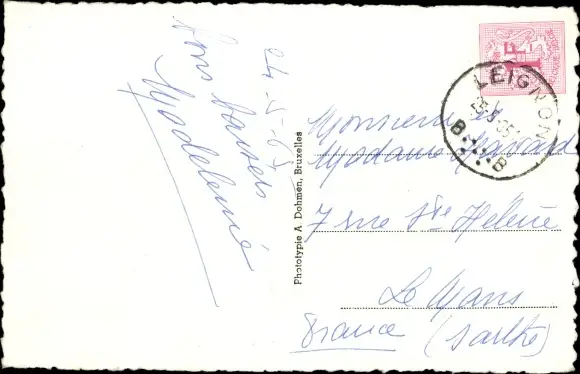 24-5-65
Bons baisers
Madeleine
Phototypie A. Dohmen, Bruxelles
1F
LEIGNON
B B
Monsieur et
Madame
7 rue Ste Hélène
Le Mans
France (Sarthe)